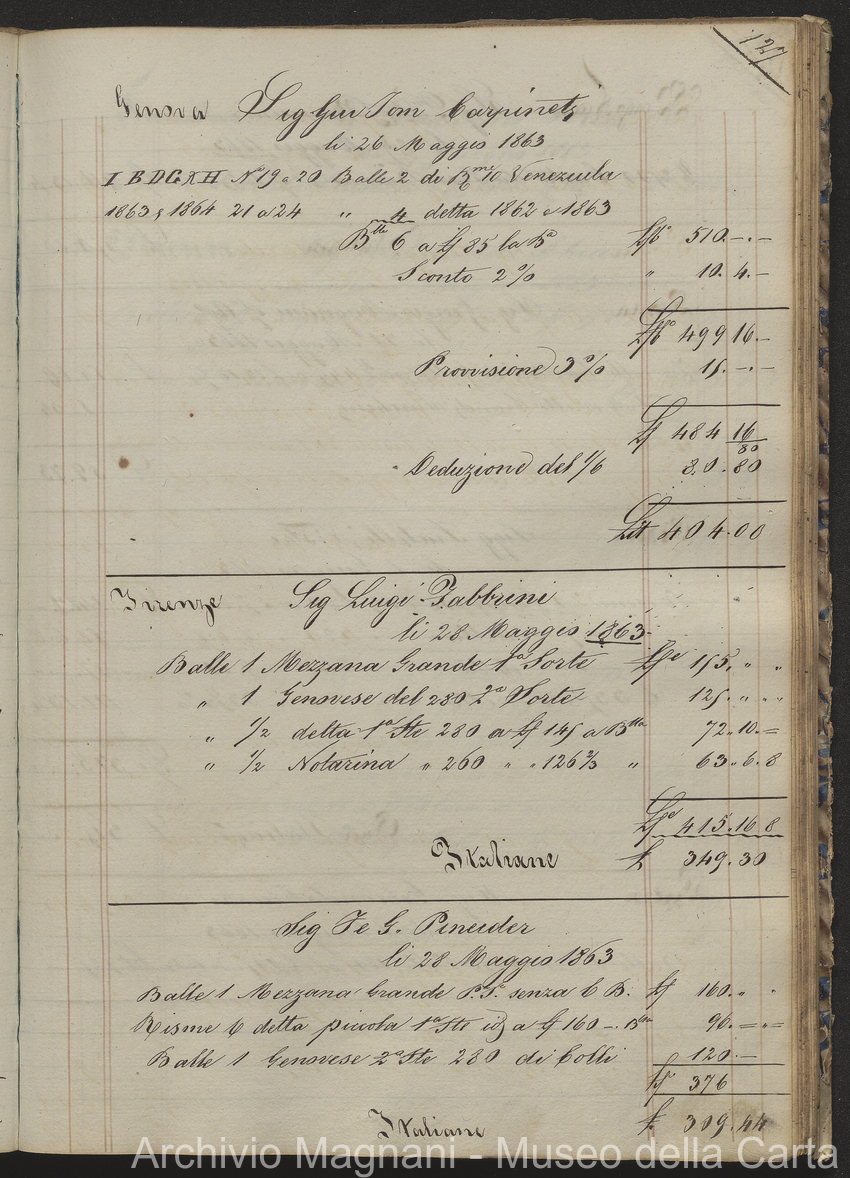 127
Genova Sig Giu Tom Carpineti
li 26 Maggio 1863
I B D G X H No 19 a 20 Balle 2 di Rme 10 Venezuela
1863 1864 21 a 24 " 4 detta 1862 e 1863
Blle 6 a Lf 85 la Ba Lf 510.-.-
Sconto 2 % " 10.4.-
Lf 499 16.-
Provvisione 3 % 15.-.-
Lf 484 16
80
Deduzione del 1/6 80.80
Lit 404.00
Firenze Sig Luigi Fabbrini
li 28 Maggio 1863
Balle 1 Mezzana Grande 1a Sorte Lfe 155. " "
" 1 Genovese del 280 2a Sorte 125. " "
" 1/2 detta 1a Ste 280 a Lf 145 a Blla 72.10.=
" 1/2 Notarina " 260 " " 126 2/3 " 63.6.8
Lfe 415.16 8
Italiane £ 349.30
Sig F e G. Pineider
li 28 Maggio 1863
Balle 1 Mezzana Grande P.S. senza 6 B. Lf 160. " "
Risme 6 detta piccola 1a Ste id a Lf 160 -. Blla 96.=.=
Balle 1 Genovese 2a Ste 280 di Colli 120.-
Lf 376
Italiane £ 309.44
Archivio Magnani - Museo della Carta